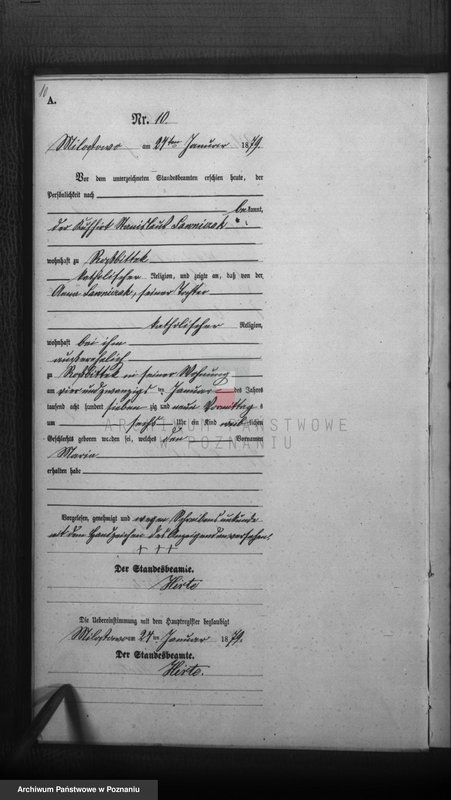 10
A.
Nr. 10
Milostowo am 24ten Januar 1879.
Vor dem unterzeichneten Standesbeamten erschien heute, der
Persönlichkeit nach
bekannt,
der Kuhhirt Stanislaus Lawniczak
wohnhaft zu Roßbittek
katholischer Religion, und zeigte an, daß von der
Anna Lawniczak, seiner Tochter
katholischer Religion,
wohnhaft bei ihm
außerehelich
zu Roßbittek in seiner Wohnung
am vier und zwanzigsten Januar des Jahres
tausend acht hundert siebenzig und neun Vormittags
um sechs Uhr ein Kind weiblichen
Geschlechts geboren worden sei, welches den Vornamen
Maria
erhalten habe
Vorgelesen, genehmigt und wegen Schreibensunkunde
mit dem Handzeichen des Anzeigenden versehen.
+ + +
Der Standesbeamte.
Hirte
Die Uebereinstimmung mit dem Hauptregister beglaubigt
Milostowo am 24ten Januar 1879.
Der Standesbeamte.
Hirte.
ARCHIWUM PAŃSTWOWE
W POZNANIU
Archiwum Państwowe w Poznaniu